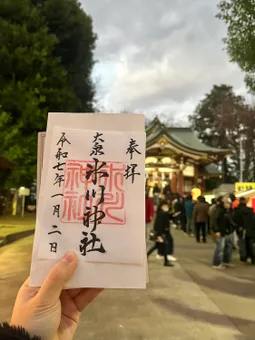 奉拝
大泉
氷川神社
氷川
神社
令和七年一月二日